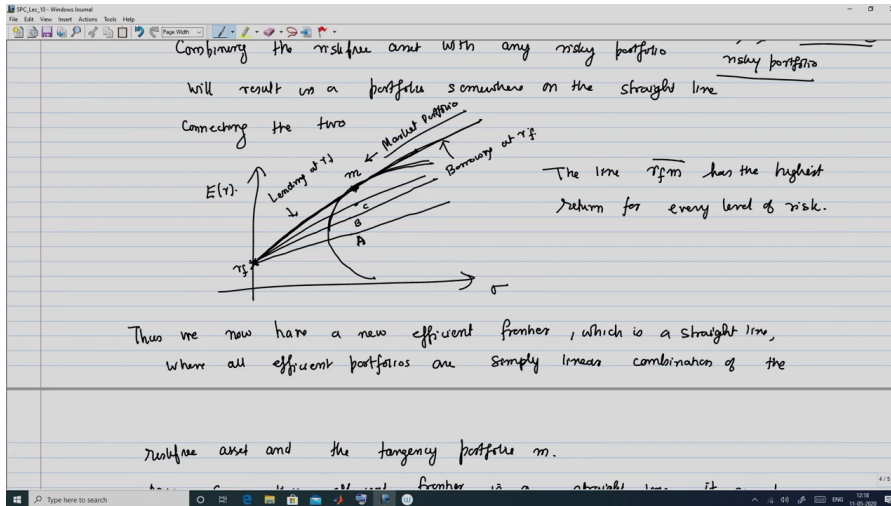 SPC_Lec_10 - Windows Journal
File Edit View Insert Actions Tools Help
Page Width
Combining the riskfree asset with any risky portfolio
risky portfolio
will result in a portfolio somewhere on the straight line
connecting the two
Market Portfolio
Lending at rf
m
Borrowing at rf
E(r).
The line rfm has the highest
return for every level of risk.
C
B
A
rf
σ
Thus we now have a new efficient frontier, which is a straight line,
where all efficient portfolios are simply linear combination of the
riskfree asset and the tangency portfolio m.
frontier is a straight line, it
4/5
Type here to search
ENG
12:18
11-05-2020